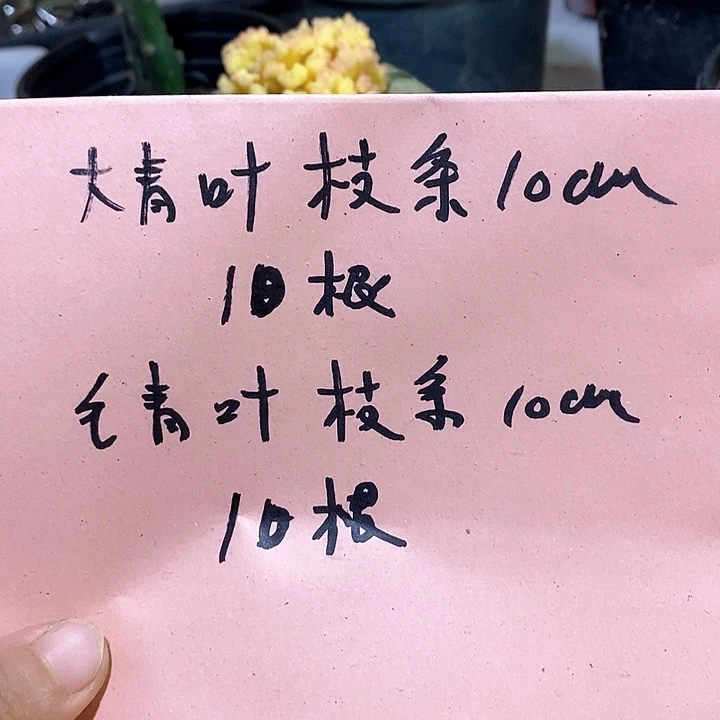 大青叶 枝条 10cm
10根
乞青叶 枝条 10cm
10根